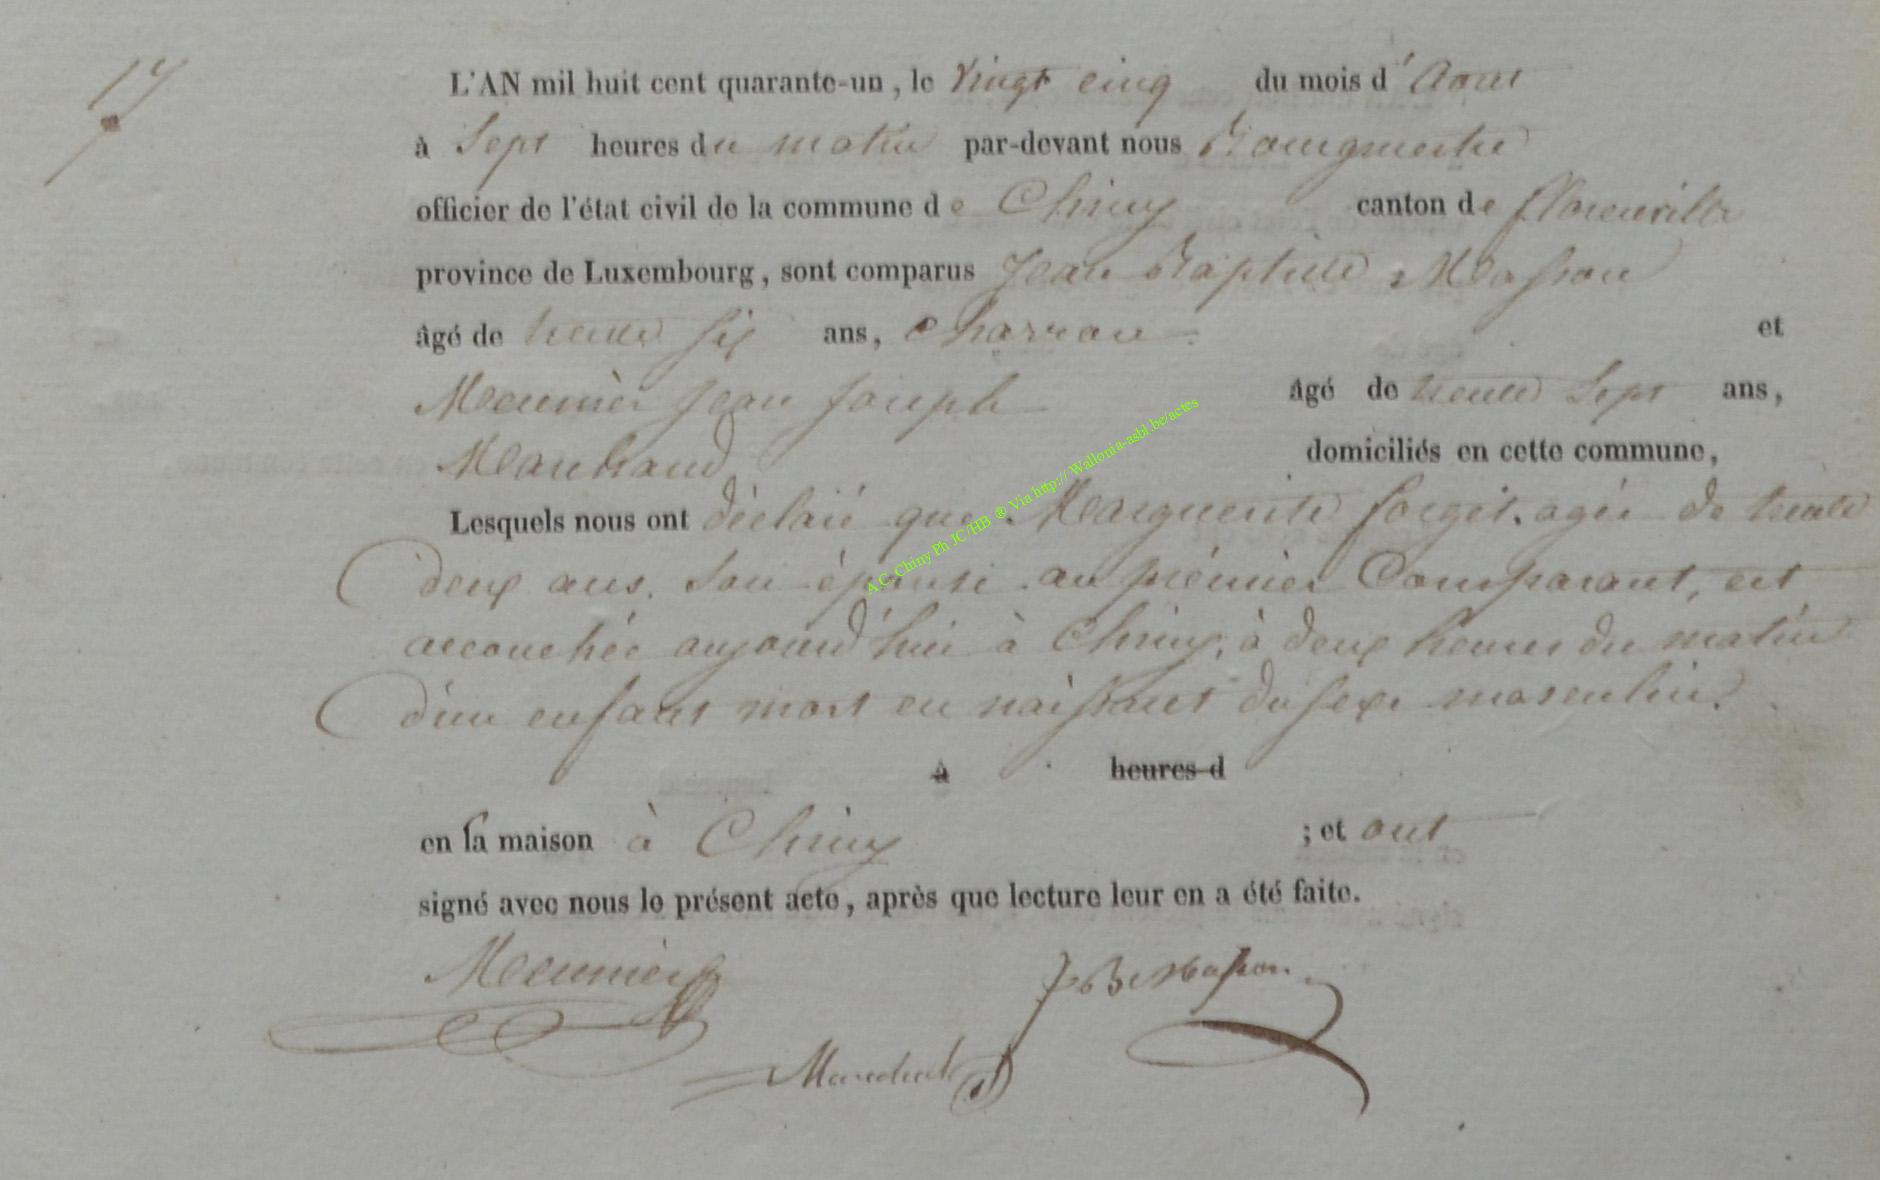 17
L'AN mil huit cent quarante-un, le vingt cinq du mois d'Aout
à Sept heures du matin par-devant nous Bourgmestre
officier de l'état civil de la commune de Chiny canton de florenville
province de Luxembourg, sont comparus Jean Baptiste Masson
âgé de trente six ans, Charron et
Meunier Jean Joseph âgé de trente Sept ans,
Marchand domiciliés en cette commune,
Lesquels nous ont déclaré que Marguerite forget. agée de trente
deux ans. son épouse au prémier Comparant, est
accouchée aujourd'hui à Chiny, à deux heures du matin
d'un enfant mort en naissant du sexe masculin.
à heures d
en sa maison à Chiny ; et ont
signé avec nous le présent acte, après que lecture leur en a été faite.
Meunier JB Masson
A.C. Chiny Ph JC/HB ® Via http:// Wallonia-asbl.be/actes